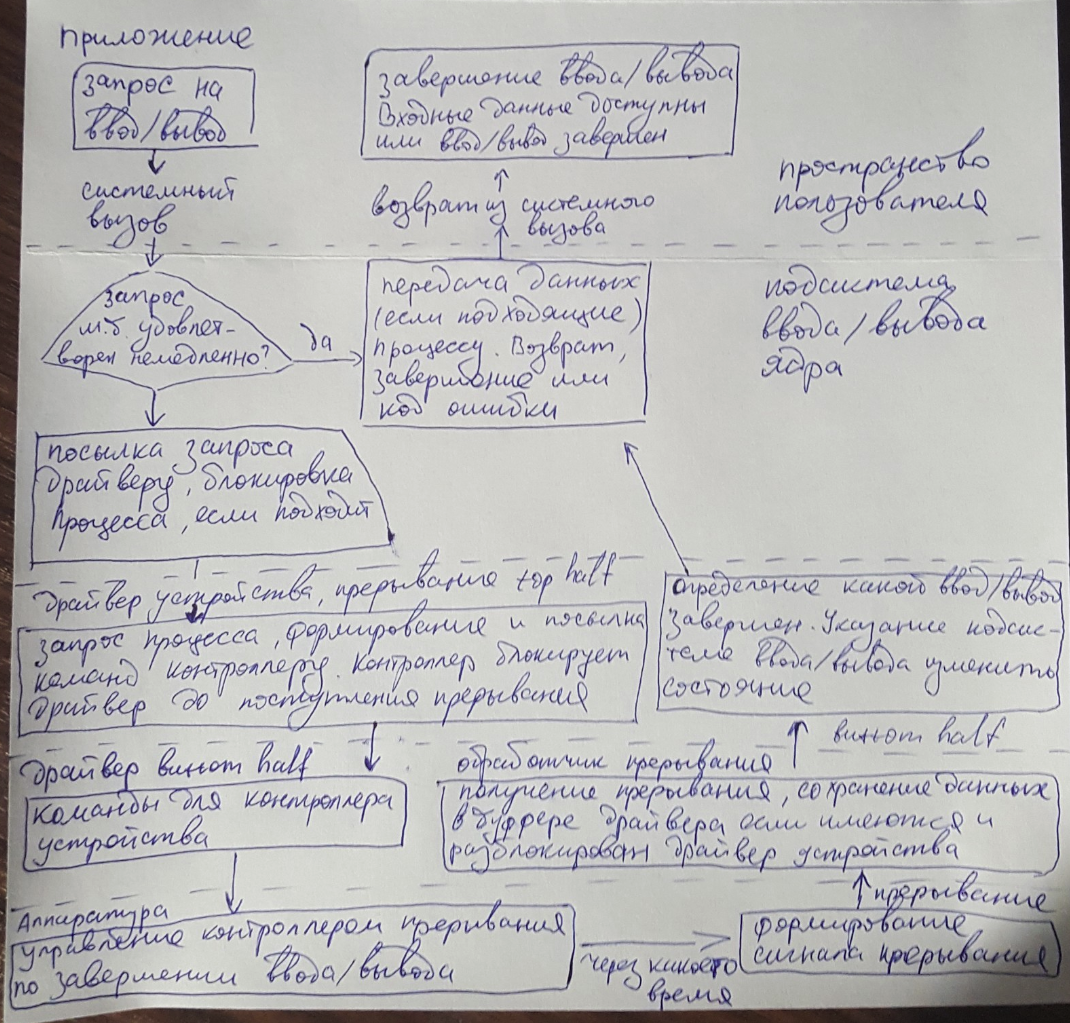 приложение
запрос на
ввод/вывод
системный
вызов
завершение ввода/вывода
Входные данные доступны
или ввод/вывод завершен
возврат из системного
вызова
пространство
пользователя
запрос
м.б. удовлет-
ворен немедленно?
да
передача данных
(если подходящие)
процессу. Возврат,
завершение или
код ошибки
подсистема
ввода/вывода
ядра
посылка запроса
драйверу, блокировка
процесса, если подходит
драйвер устройства, прерывание top half
запрос процесса, формирование и посылка
команд контроллеру. контроллер блокирует
драйвер до поступления прерывания
определение какой ввод/вывод
завершен. Указание подсис-
теме ввода/вывода
состояние
half
драйвер half
команды для контроллера
устройства
обработчик прерывания
получение прерывания, сохранение данных
в буффере драйвера если имеются и
разблокирован драйвер устройства
Аппаратура
управление контроллером прерывания
по завершении ввода/вывода
через какое-то
время
прерывание
формирование
сигнала прерывания